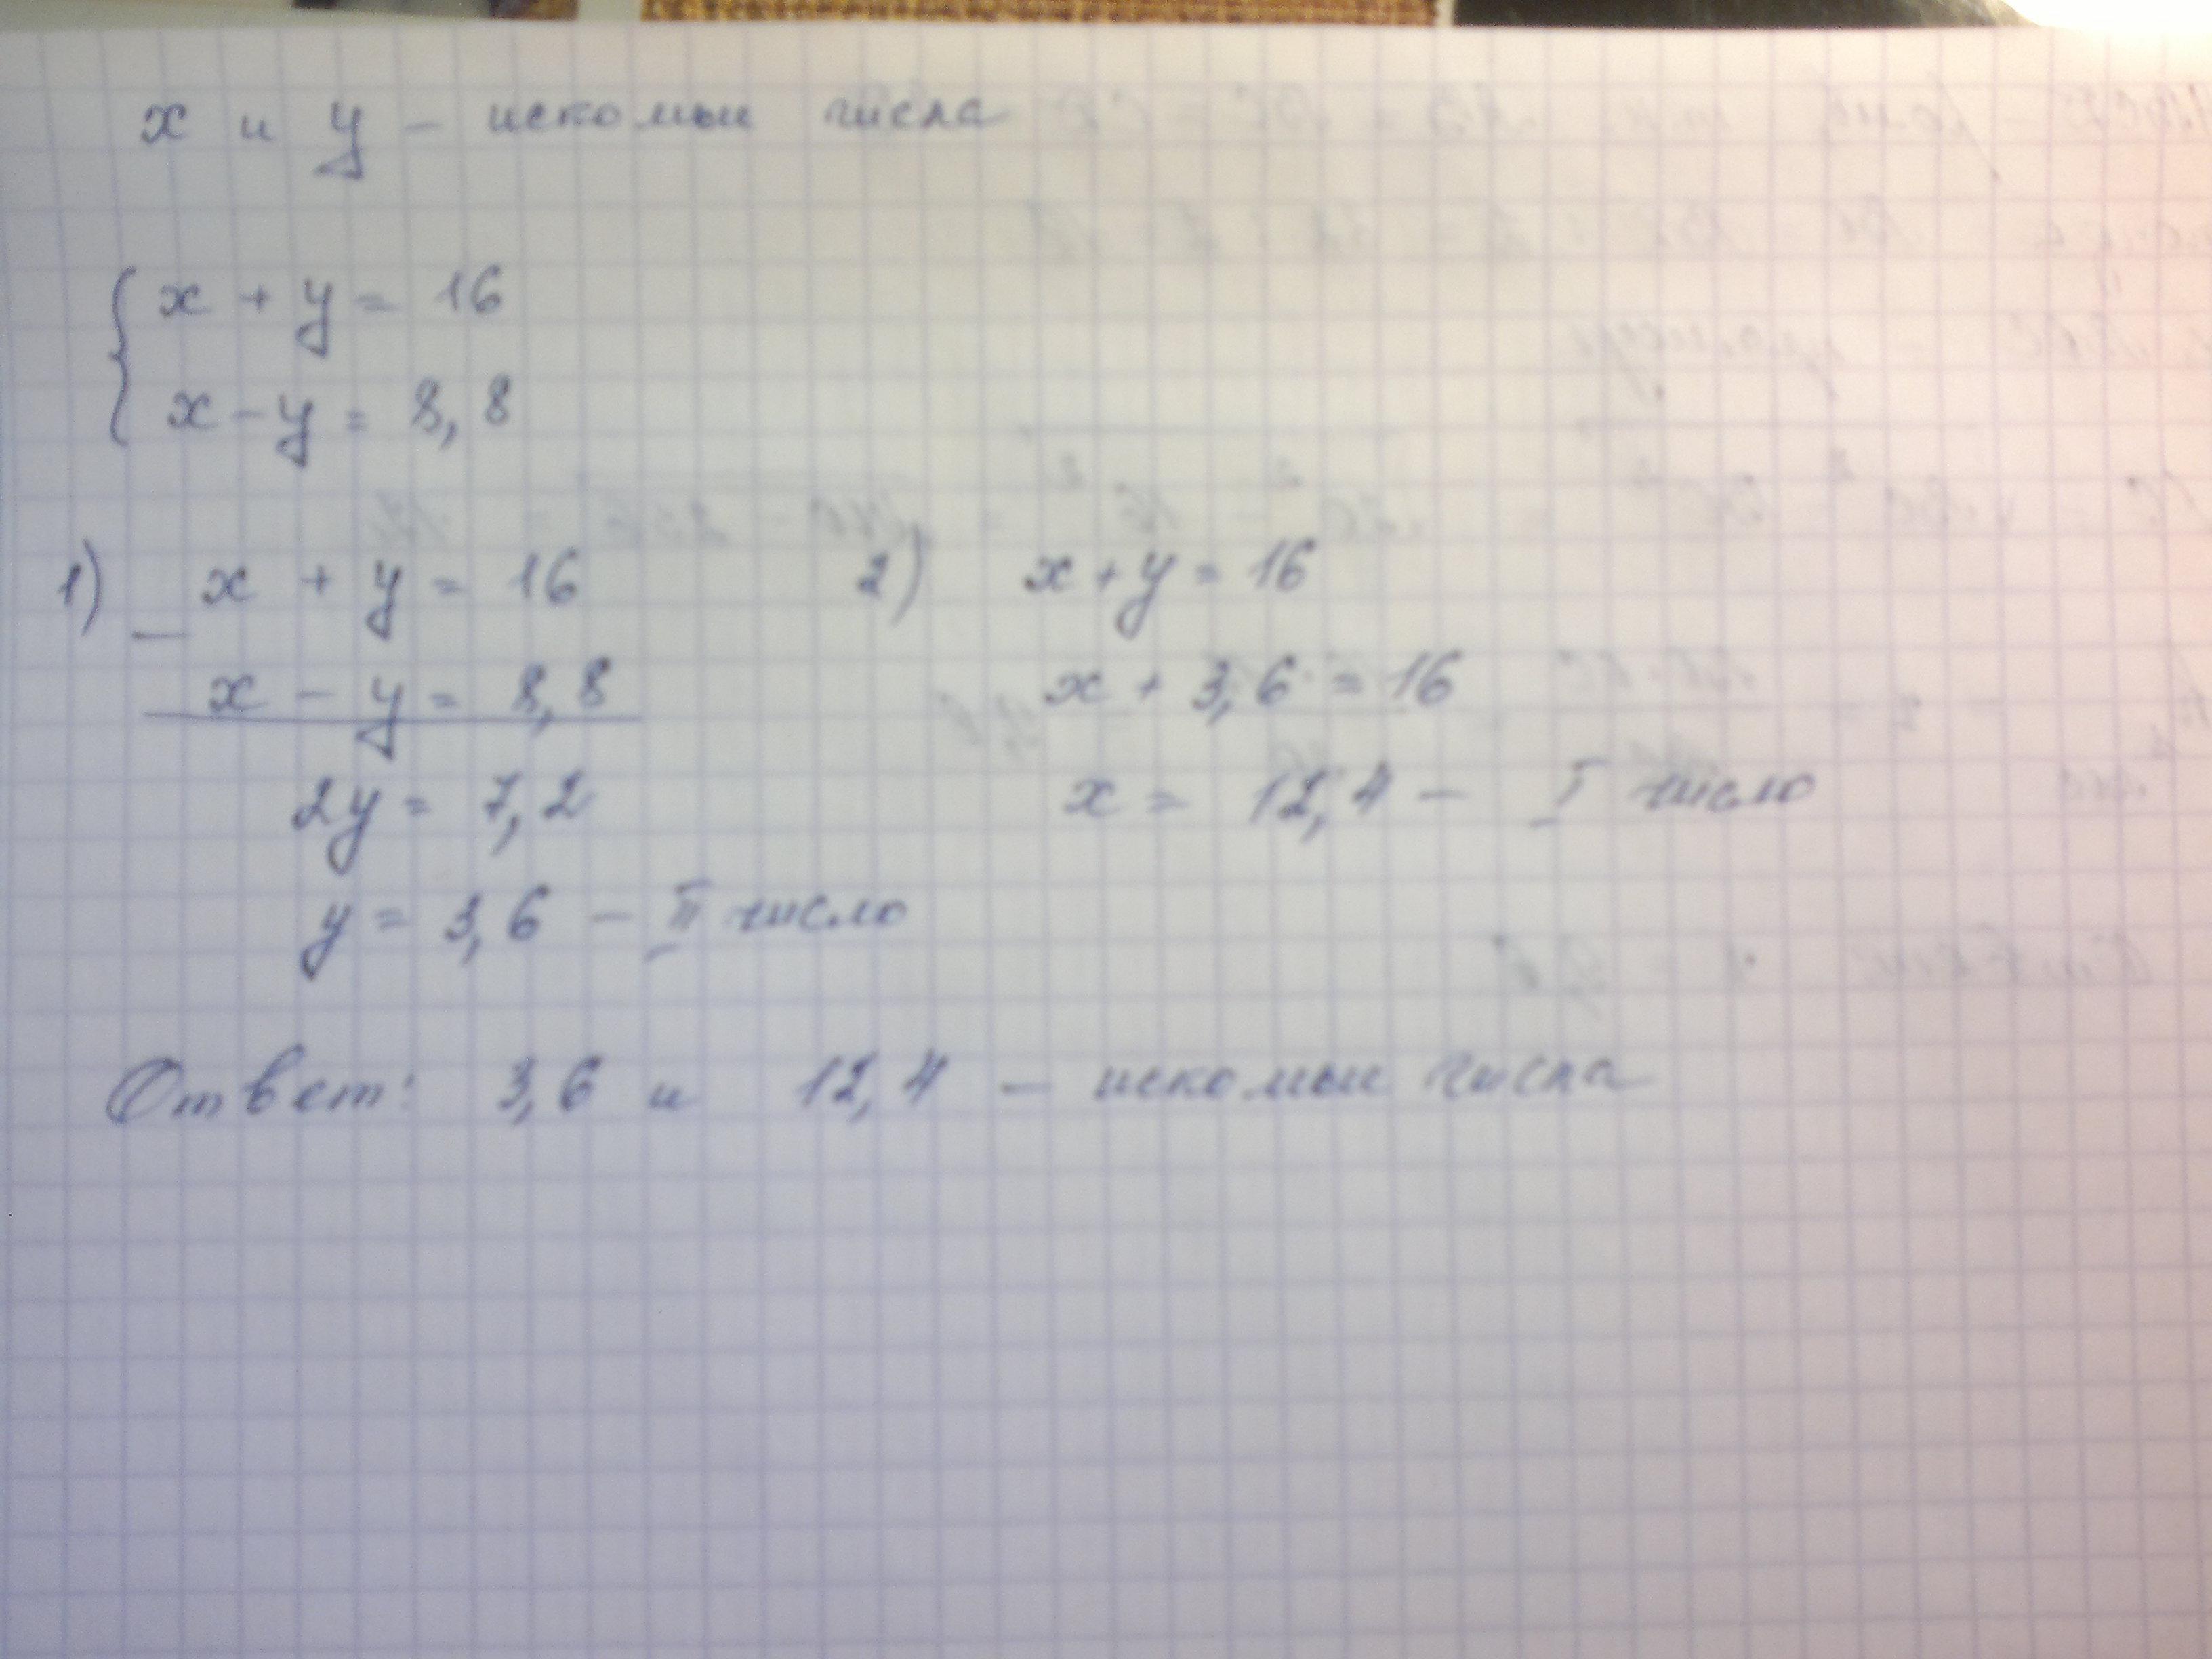 x и y – искомые числа
{ x + y = 16
x – y = 8,8
1) – x + y = 16
x – y = 8,8
2y = 7,2
y = 3,6 – II число
2) x + y = 16
x + 3,6 = 16
x = 12,4 – I число
Ответ: 3,6 и 12,4 – искомые числа